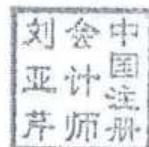 中国注册
会计师
刘亚芹